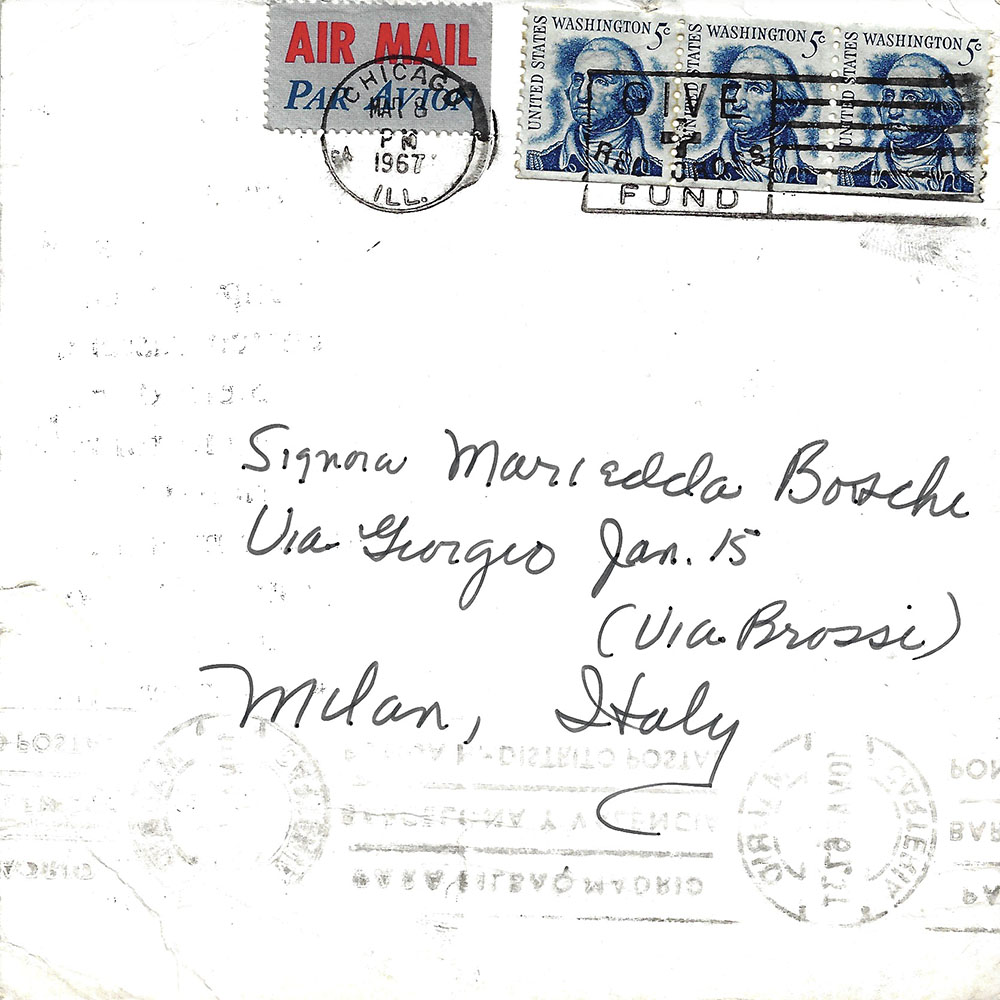 AIR MAIL
PAR AVION
CHICAGO
MAY 8
PM
1967
ILL.
UNITED STATES WASHINGTON 5c
UNITED STATES WASHINGTON 5c
UNITED STATES WASHINGTON 5c
GIVE
RED CROSS
FUND
Signora Mariedda Boschi
Via Giorgio Jan. 15
(Via Brossi)
Milan, Italy
DISTRITO POSTAL
BARCELONA Y VALENCIA
PARA BILBAO MADRID